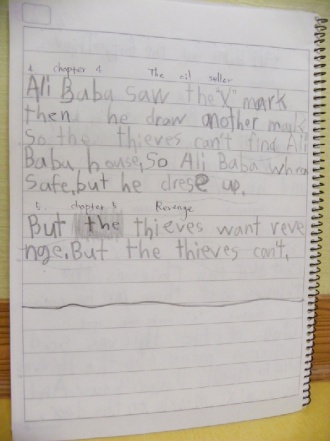 4. chapter 4 The oil seller
Ali Baba saw the "V" mark
then he draw another mark
So the thieves can't find Ali
Baba house, So Ali Baba
Safe, but he drese up.
5. chapter 5 Revenge
But the thieves want reve
nge. But the thieves can't.